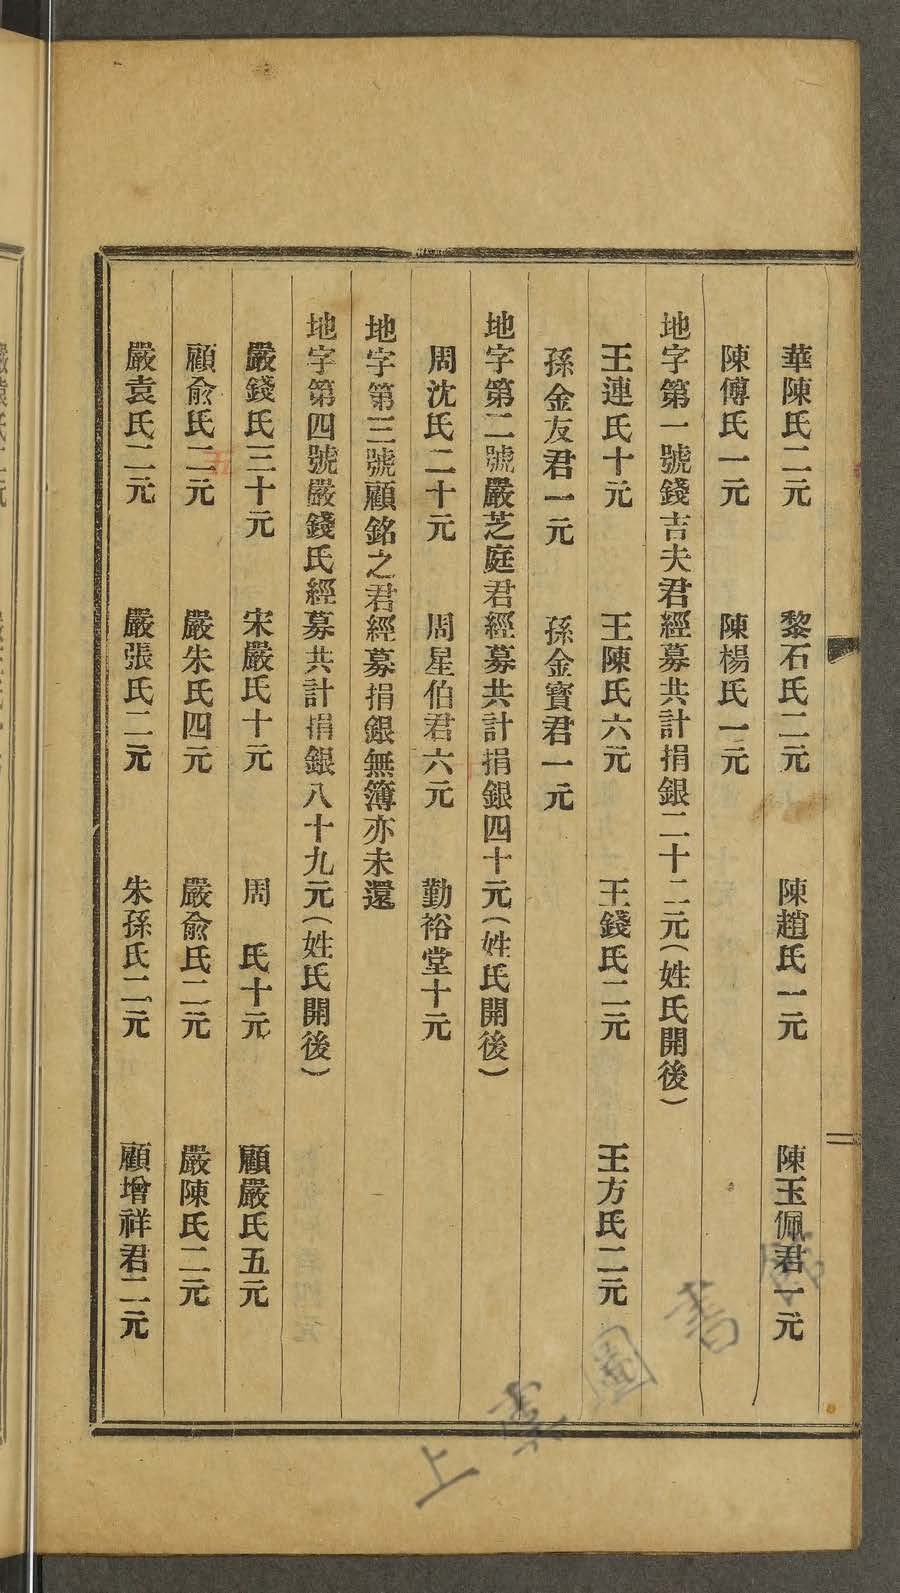 華陳氏二元　黎石氏二元　陳趙氏一元　陳玉佩君一元
陳傅氏一元　陳楊氏一元
地字第一號錢吉夫君經募共計捐銀二十二元(姓氏開後)
王連氏十元　王陳氏六元　王錢氏二元　王方氏二元
孫金友君一元　孫金寶君一元
地字第二號嚴芝庭君經募共計捐銀四十元(姓氏開後)
周沈氏二十元　周星伯君六元　勤裕堂十元
地字第三號顧銘之君經募捐銀無簿亦未還
地字第四號嚴錢氏經募共計捐銀八十九元(姓氏開後)
嚴錢氏三十元　宋嚴氏十元　周　氏十元　顧嚴氏五元
顧俞氏二元　嚴朱氏四元　嚴俞氏二元　嚴陳氏二元
嚴袁氏二元　嚴張氏二元　朱孫氏二元　顧增祥君二元
上虞圖書館